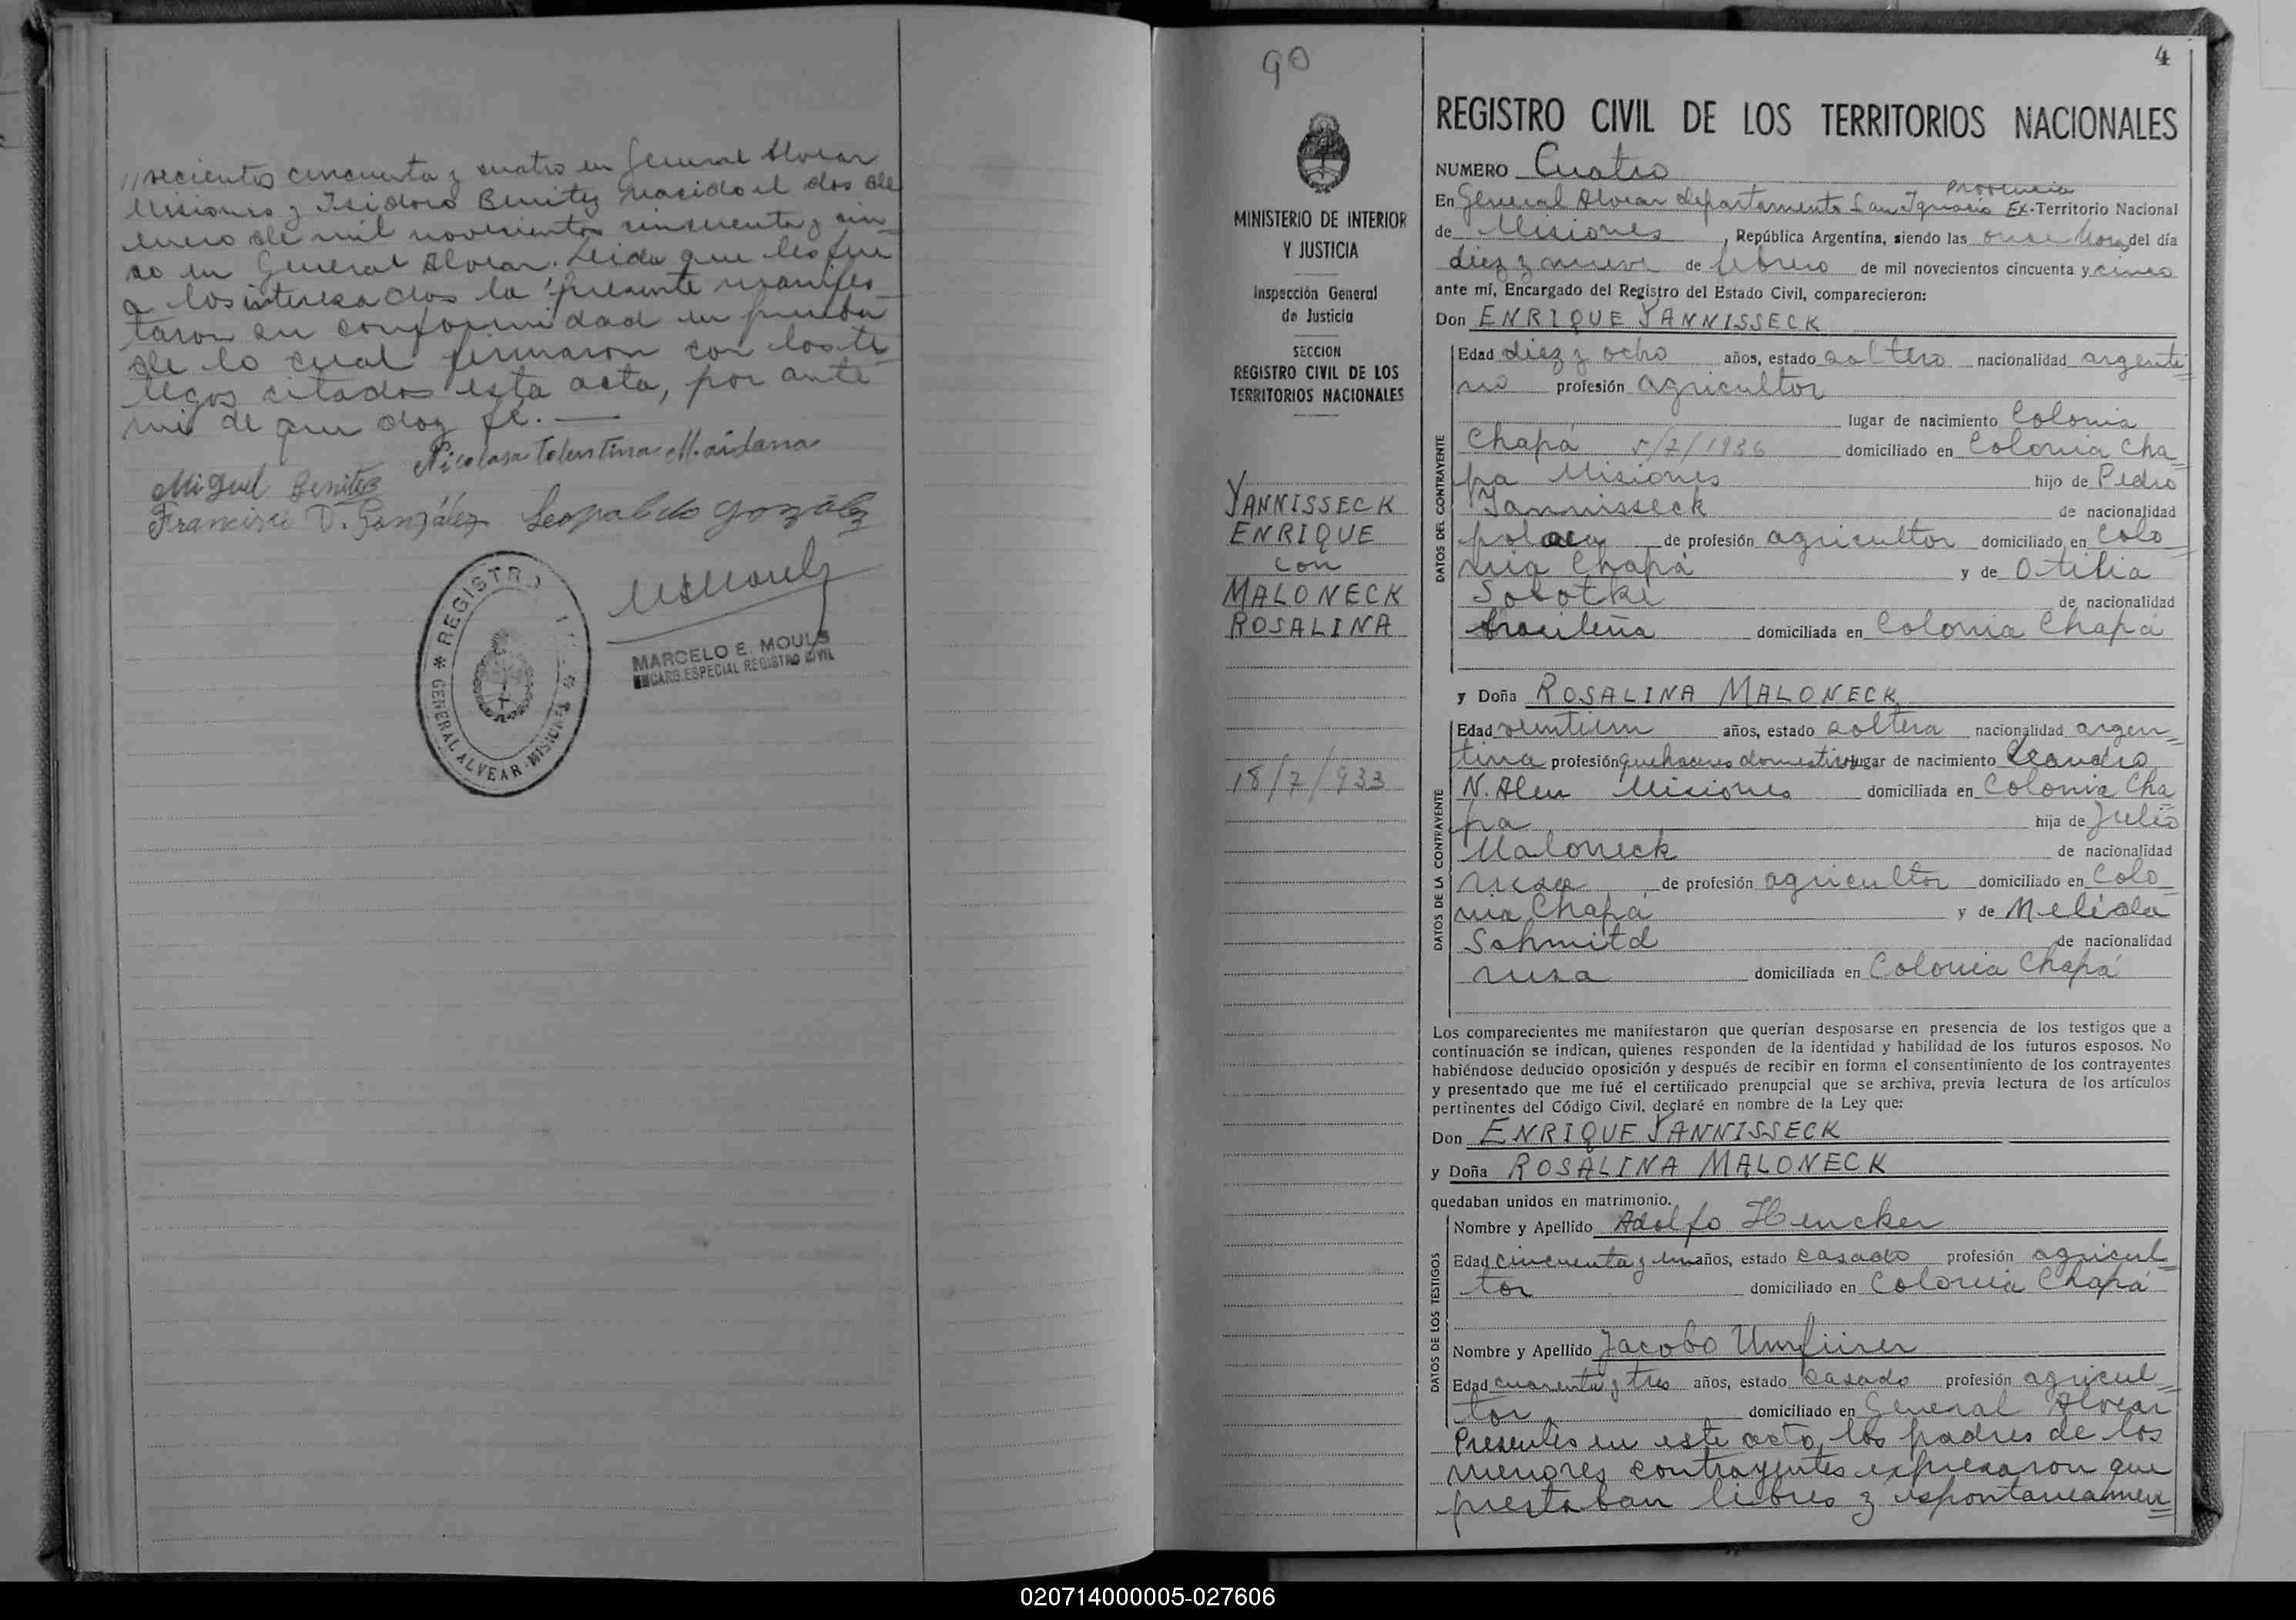 //vecientos cincuenta y cuatro en General Alvear
Misiones y Isidoro Benitez nacido el dos de
enero de mil novecientos cincuenta y cin-
co en General Alvear. Leida que les fue
a los interesados la presente manifes-
taron su conformidad en prueba
de lo cual firmaron con los te
tigos citados esta acta, por ante
mi de que doy fe.
Nicolasa Tolentina Maidana
Miguel Benitez
Francisco D. González Leopoldo Gozález
REGISTRO
GENERAL ALVEAR - MISIONES
MARCELO E. MOULS
ENCARG. ESPECIAL REGISTRO CIVIL
90
MINISTERIO DE INTERIOR
Y JUSTICIA
Inspección General
de Justicia
SECCION
REGISTRO CIVIL DE LOS
TERRITORIOS NACIONALES
YANNISSECK
ENRIQUE
con
MALONECK
ROSALINA
18/7/933
4
REGISTRO CIVIL DE LOS TERRITORIOS NACIONALES
NUMERO Cuatro
Provincia
En General Alvear departamento San Ignacio Ex-Territorio Nacional
de Misiones, República Argentina, siendo las once horas del día
diez y nueve de febrero de mil novecientos cincuenta y cinco
ante mí, Encargado del Registro del Estado Civil, comparecieron:
Don ENRIQUE YANNISSECK
DATOS DEL CONTRAYENTE
Edad diez y ocho años, estado soltero nacionalidad argenti
no profesión agricultor
lugar de nacimiento Colonia
Chapá 5/7/1936 domiciliado en Colonia Cha
pa Misiones hijo de Pedro
Yannisseck de nacionalidad
polaca de profesión agricultor domiciliado en Colo
nia Chapá y de Otilia
Sobotke de nacionalidad
brasileña domiciliada en Colonia Chapá
y Doña ROSALINA MALONECK
DATOS DE LA CONTRAYENTE
Edad veintiun años, estado soltera nacionalidad argen
tina profesión quehaceres domesticos lugar de nacimiento Leandro
N. Alem Misiones domiciliada en Colonia Cha
pa hija de Julio
Maloneck de nacionalidad
rusa de profesión agricultor domiciliado en Colo
nia Chapá y de Melida
Schmitd de nacionalidad
rusa domiciliada en Colonia Chapá
Los comparecientes me manifestaron que querían desposarse en presencia de los testigos que a
continuación se indican, quienes responden de la identidad y habilidad de los futuros esposos. No
habiéndose deducido oposición y después de recibir en forma el consentimiento de los contrayentes
y presentado que me fué el certificado prenupcial que se archiva, previa lectura de los artículos
pertinentes del Código Civil, declaré en nombre de la Ley que:
Don ENRIQUE YANNISSECK
y Doña ROSALINA MALONECK
quedaban unidos en matrimonio.
DATOS DE LOS TESTIGOS
Nombre y Apellido Adolfo Hencker
Edad cincuenta y un años, estado casado profesión agricul
tor domiciliado en Colonia Chapá
Nombre y Apellido Jacobo Umfürer
Edad cuarenta y tres años, estado casado profesión agricul
tor domiciliado en General Alvear
Presentes en este acto, los padres de los
menores contrayentes expresaron que
prestaban libres y espontaneamen
020714000005-027606